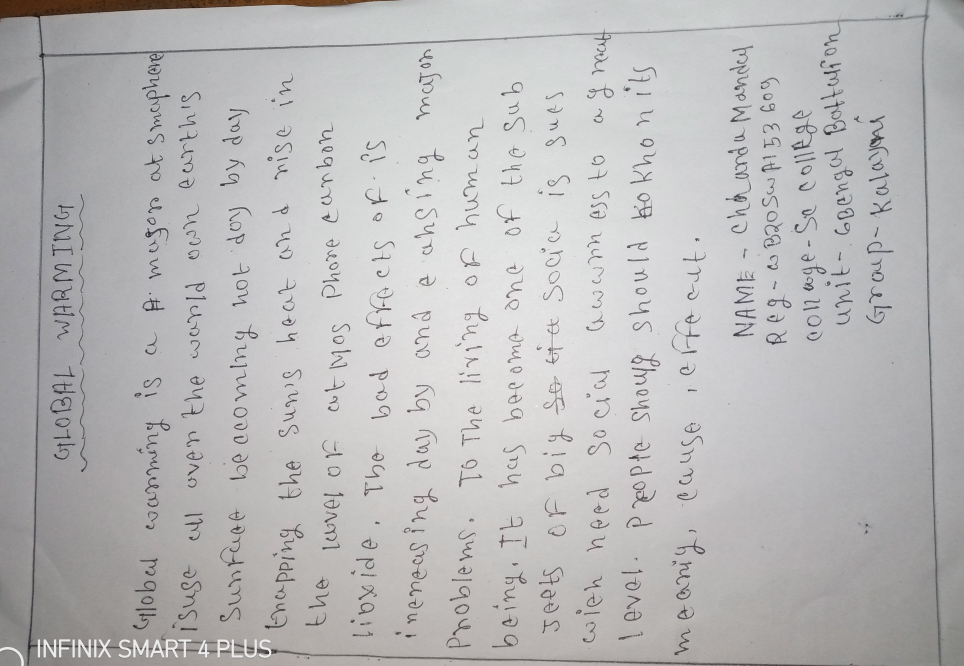 GLOBAL WARMING
Global warming is a A major atsmaphere
isuse all over the world own earth's
Surface beacoming hot day by day
trapping the sun's heat and rise in
the level of atMos Phone carbon
lioxide. The bad effects of is
increasing day by and eahsing major
Problems. To The living of human
being. It has become one of the Sub
Jeets of big Socia is sues
wich need social awwrness to a great
level. People should should kokhon its
meaning, cause, effecut.
NAME - Chhandu Mandal
Reg - WB20SWA153609
collage - Sc college
unit - 6 Bengal Battalion
Group - Kalayani
INFINIX SMART 4 PLUS